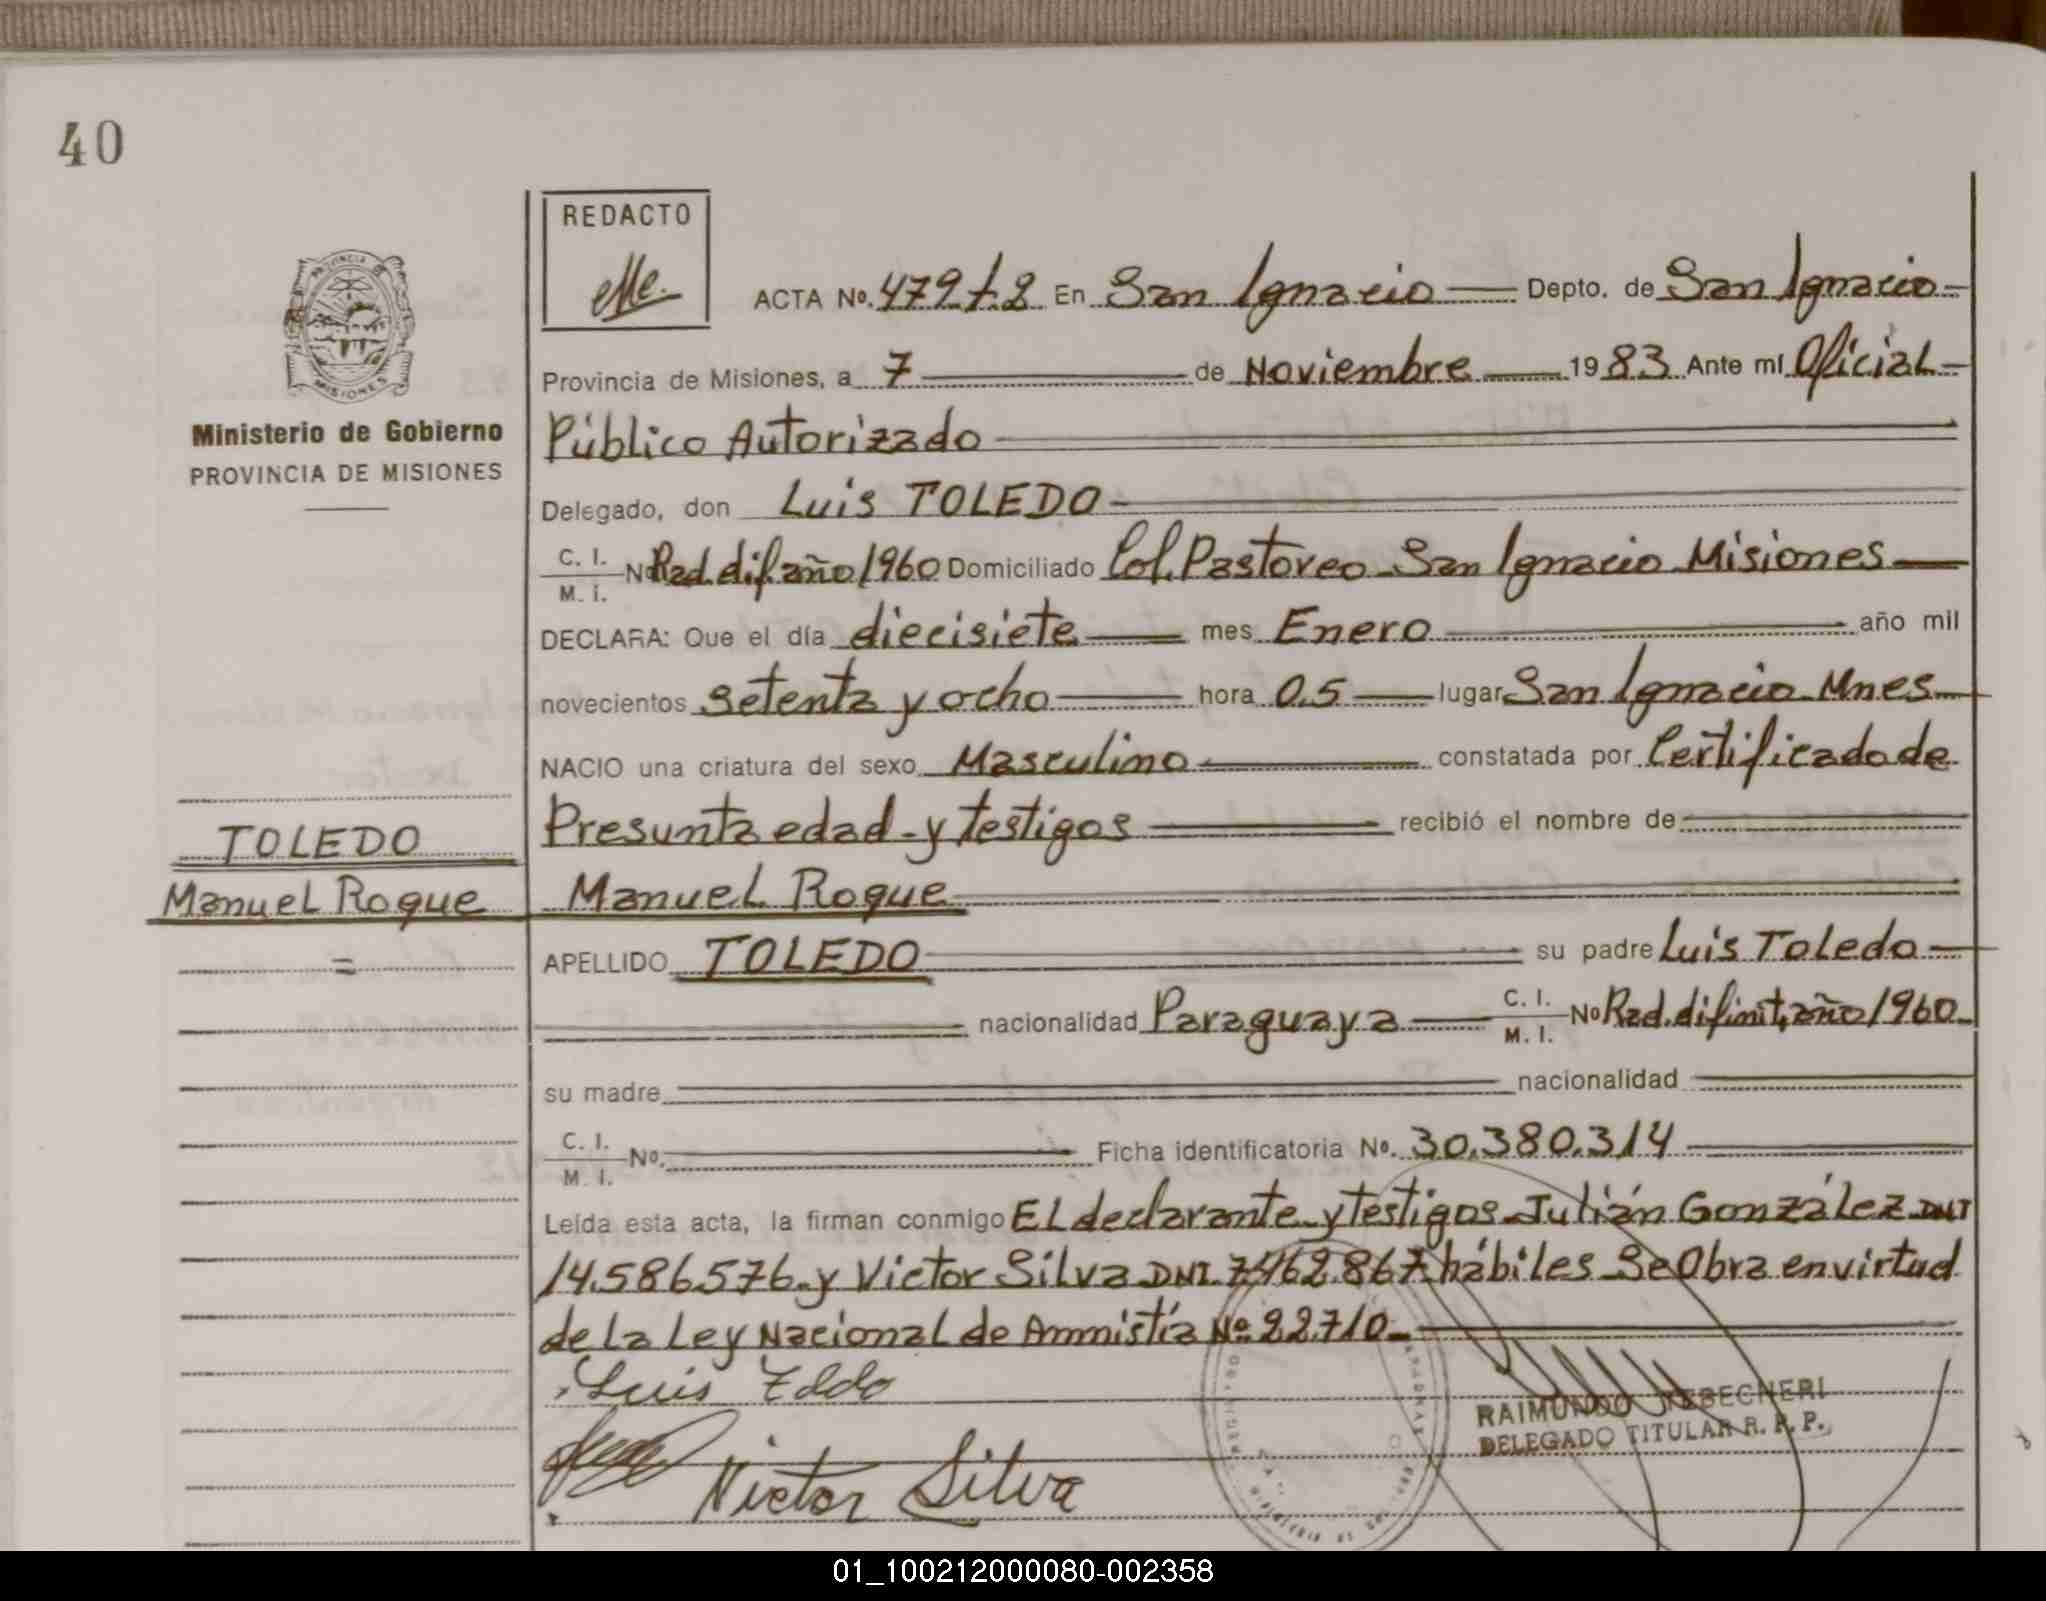 40
REDACTO
ACTA Nº. 479 t. 2 En San Ignacio Depto. de San Ignacio
Provincia de Misiones, a 7 de Noviembre 1983 Ante mí Oficial
Público Autorizado
Delegado, don Luis TOLEDO
C. I. M. I. Nº Rad. dif. año 1960 Domiciliado Col. Pastoreo San Ignacio Misiones
DECLARA: Que el día diecisiete mes Enero año mil
novecientos setenta y ocho hora 0.5 lugar San Ignacio Mnes
NACIO una criatura del sexo Masculino constatada por Certificado de
Presunta edad y testigos recibió el nombre de
Manuel Roque
APELLIDO TOLEDO su padre Luis Toledo
nacionalidad Paraguaya C. I. M. I. Nº Rad. difinit, año 1960
su madre nacionalidad
C. I. M. I. Nº. Ficha identificatoria Nº. 30.380.314
Leída esta acta, la firman conmigo El declarante y testigos Julián González DNI
14.586.576 y Victor Silva DNI 7.462.867 hábiles Se Obra en virtud
de la Ley Nacional de Ammistía Nº 22.710
Luis
Victor Silva
RAIMUNDO
DELEGADO TITULAR R. P. P.
PROVINCIA DE
MISIONES
Ministerio de Gobierno
PROVINCIA DE MISIONES
TOLEDO
Manuel Roque
=
01_100212000080-002358